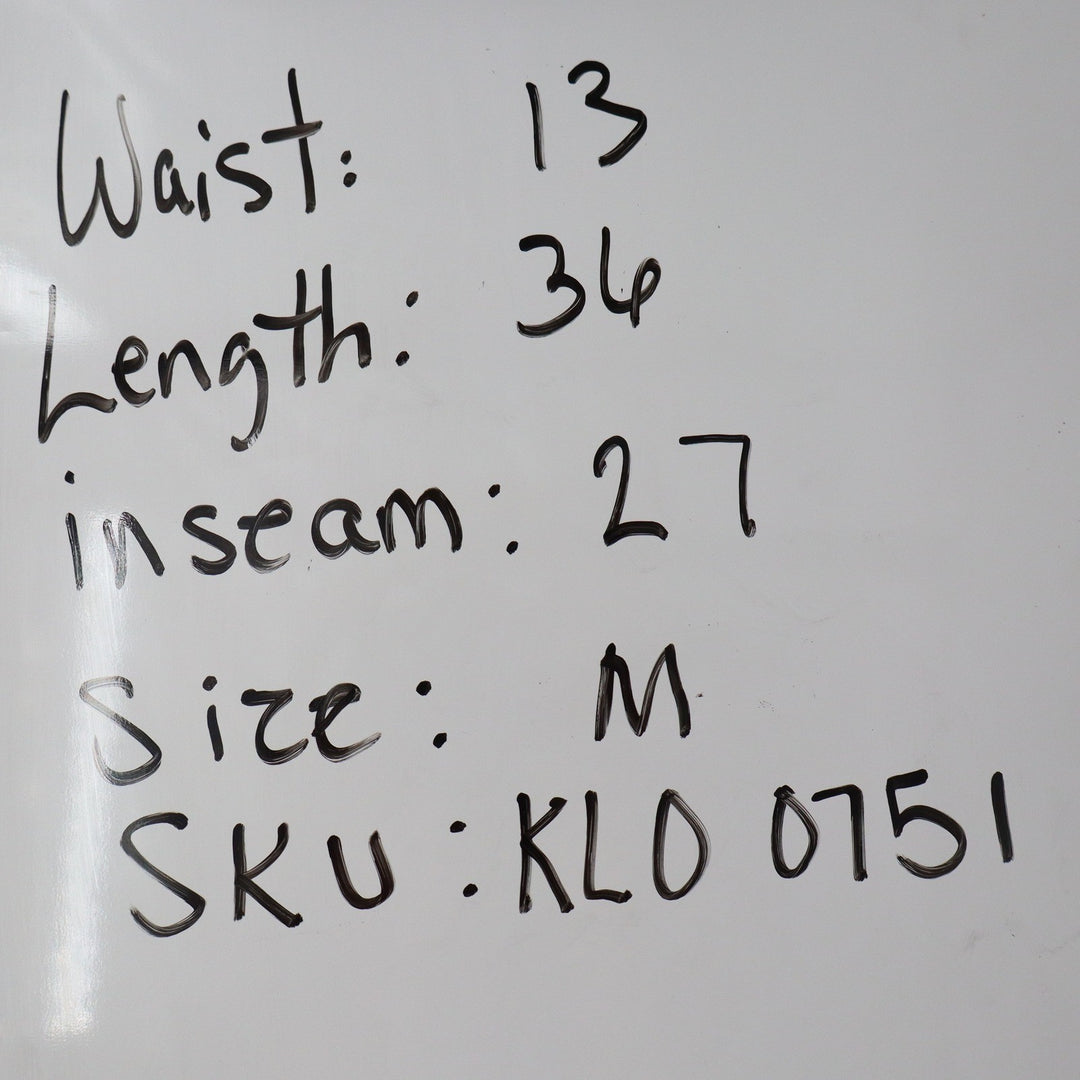 Waist: 13
Length: 36
inseam: 27
Size: M
SKU: KLO 0751